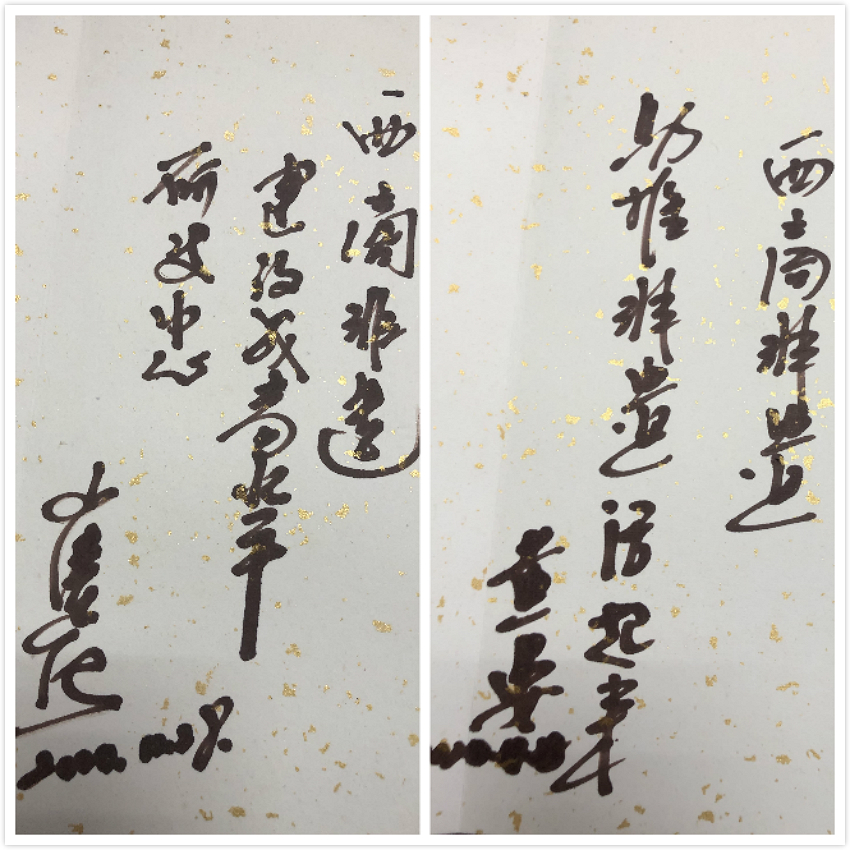 西南非遗
建设成高水平
研发中心
西南非遗
助推非遗活起来